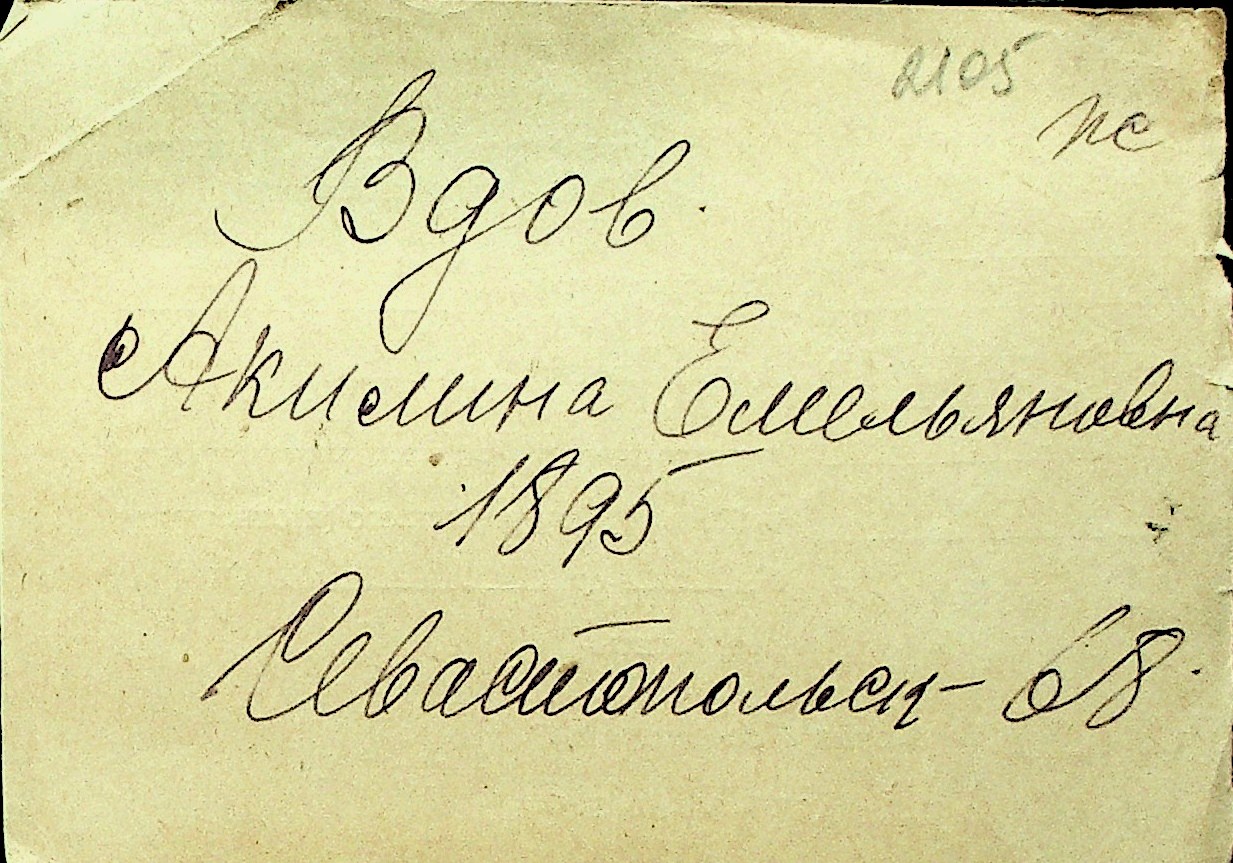 2105
пс
Вдов.
Акилина Емельяновна
1895
Севастопольск- 68.